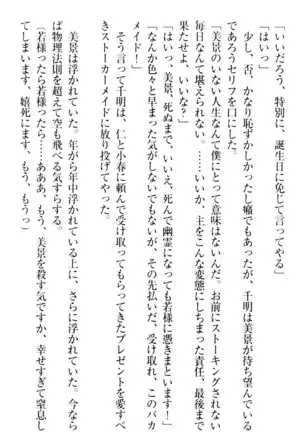 「いいだろう、特別に、誕生日に免じて言ってやる」
「はいっ」
少し、否、かなり恥ずかしかったし癪でもあったが、千明は美景が待ち望んでいる
であろうセリフを口にした。
「美景のいない人生なんて僕にとって意味はないんだ。お前にストーキングされない
毎日なんて堪えられない。……いいか、主をこんな変態にしちまった責任、最後まで
果たせよ、いいな？」
「はいっ、美景、死ぬまで、いいえ、死んで幽霊になっても若様に憑きまといます！」
「なんか色々と早まった気がしないでもないが、その先払いだ、受け取れ、このバカ
メイド！」
そう言って千明は、仁と小春に頼んで受け取ってもらってきたプレゼントを愛すべ
きストーカーメイドに放り投げてやった。
美景は浮かれていた。年がら年中浮かれている上に、さらに浮かれていた。今なら
ば物理法則を超えて空も飛べる気すらする。
（若様ったら若様ったら……ああ、もう、美景を殺す気ですか、幸せすぎて窒息し
てしまいます、嬉死にます、もう、もうっ）